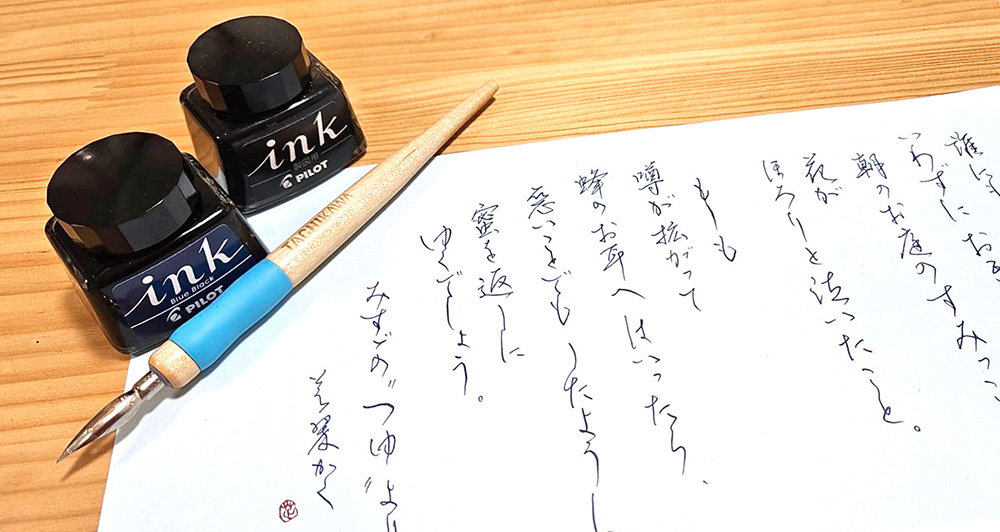 ink
製図用
PILOT
ink
Blue Black
PILOT
TACHIKAWA
誰にも
いわずにおき
朝のお庭のすみっこ
花が
ほろりと泣いたこと。
もしも
噂が拡がって
蜂のお耳へはいったら、
悪いことでもしたように
蜜を返しに
ゆくでしょう。
みすゞの〝つゆ〟より
かく